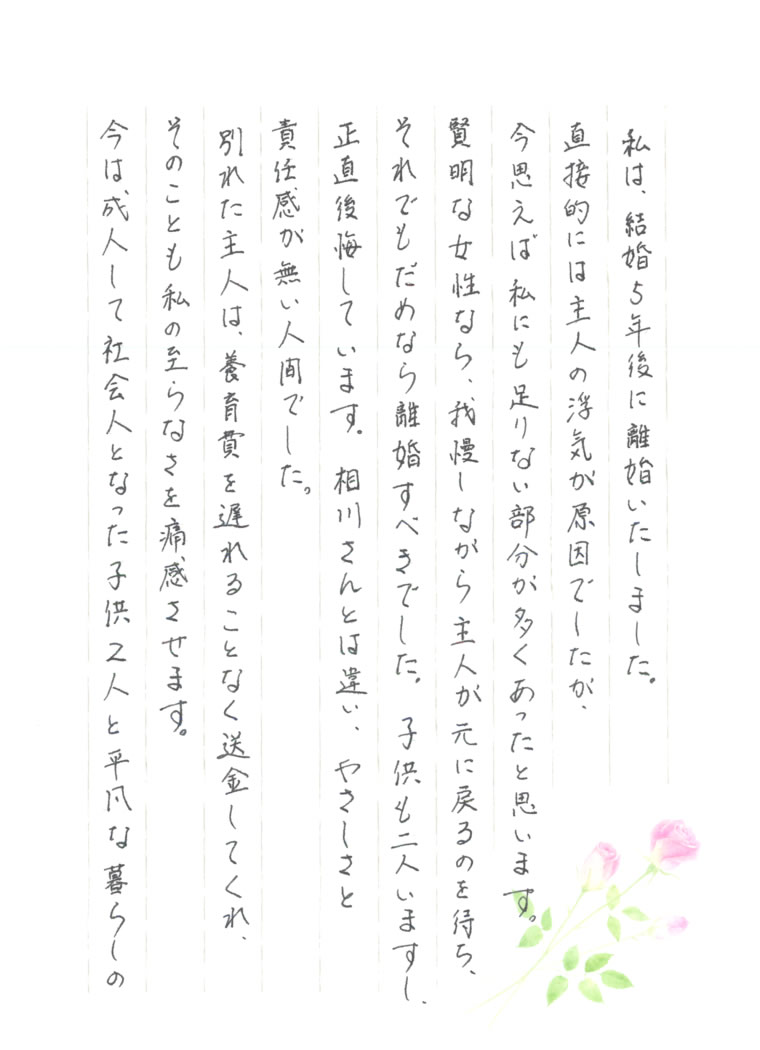 私は、結婚5年後に離婚いたしました。
直接的には主人の浮気が原因でしたが、
今思えば私にも足りない部分が多くあったと思います。
賢明な女性なら、我慢しながら主人が元に戻るのを待ち、
それでもだめなら離婚すべきでした。子供も二人いますし、
正直後悔しています。相川さんとは違い、やさしさと
責任感が無い人間でした。
別れた主人は、養育費を遅れることなく送金してくれ、
そのことも私の至らなさを痛感させます。
今は成人して社会人となった子供2人と平凡な暮らしの